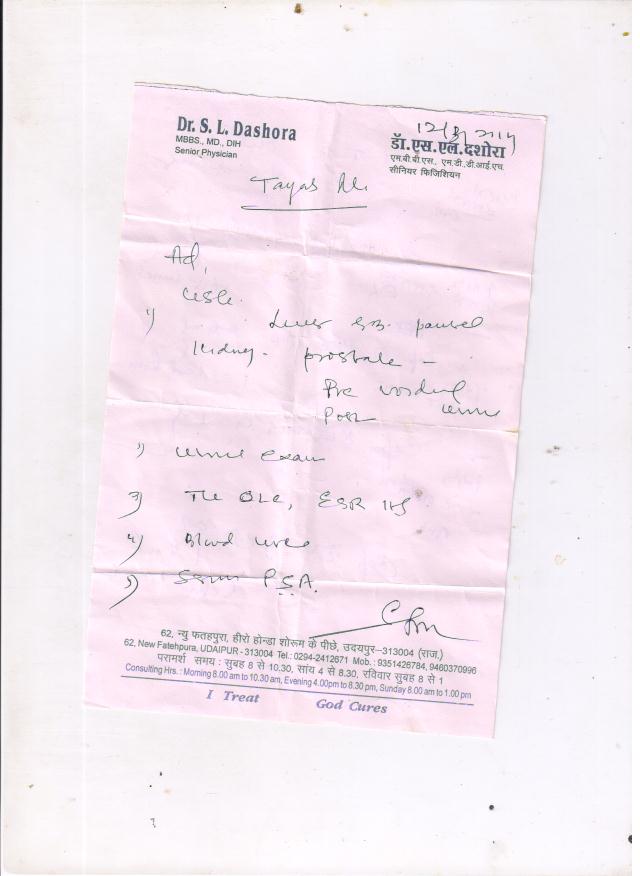 Dr. S. L. Dashora
MBBS., MD., DIH
Senior Physician
डॉ.एस.एल.दशोरा
एम.बी.बी.एस., एम.डी.,डी.आई.एच.
सीनियर फिजिशियन
Tayab Ali
Ad,
1)
Kidney. prostate –
Pre
Post
Urine
Urine Exam
3) TLC DLC, ESR Hb
4) Blood Urea
5) Serum P.S.A.
62, न्यु फतहपुरा, हीरो होन्डा शोरूम के पीछे, उदयपुर–313004 (राज.)
62, New Fatehpura, UDAIPUR - 313004 Tel.: 0294-2412671 Mob. : 9351426784, 9460370996
परामर्श समय : सुबह 8 से 10.30, सांय 4 से 8.30, रविवार सुबह 8 से 1
Consulting Hrs. : Morning 8.00 am to 10.30 am, Evening 4.00pm to 8.30 pm, Sunday 8.00 am to 1.00 pm
I Treat God Cures